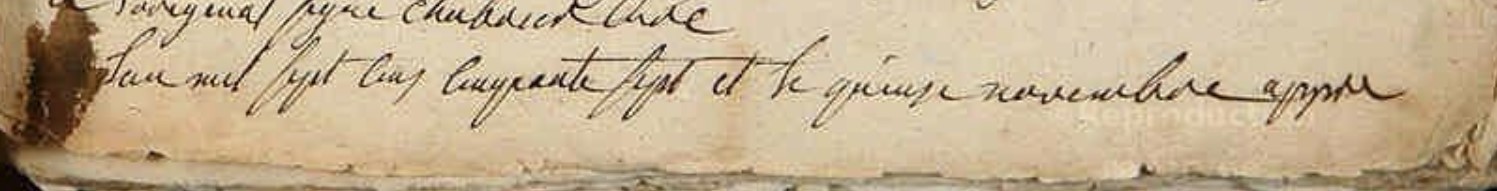 a l'original signé
L'an mil sept cens cinquante sept et le quinse novembre appres
Reproduct